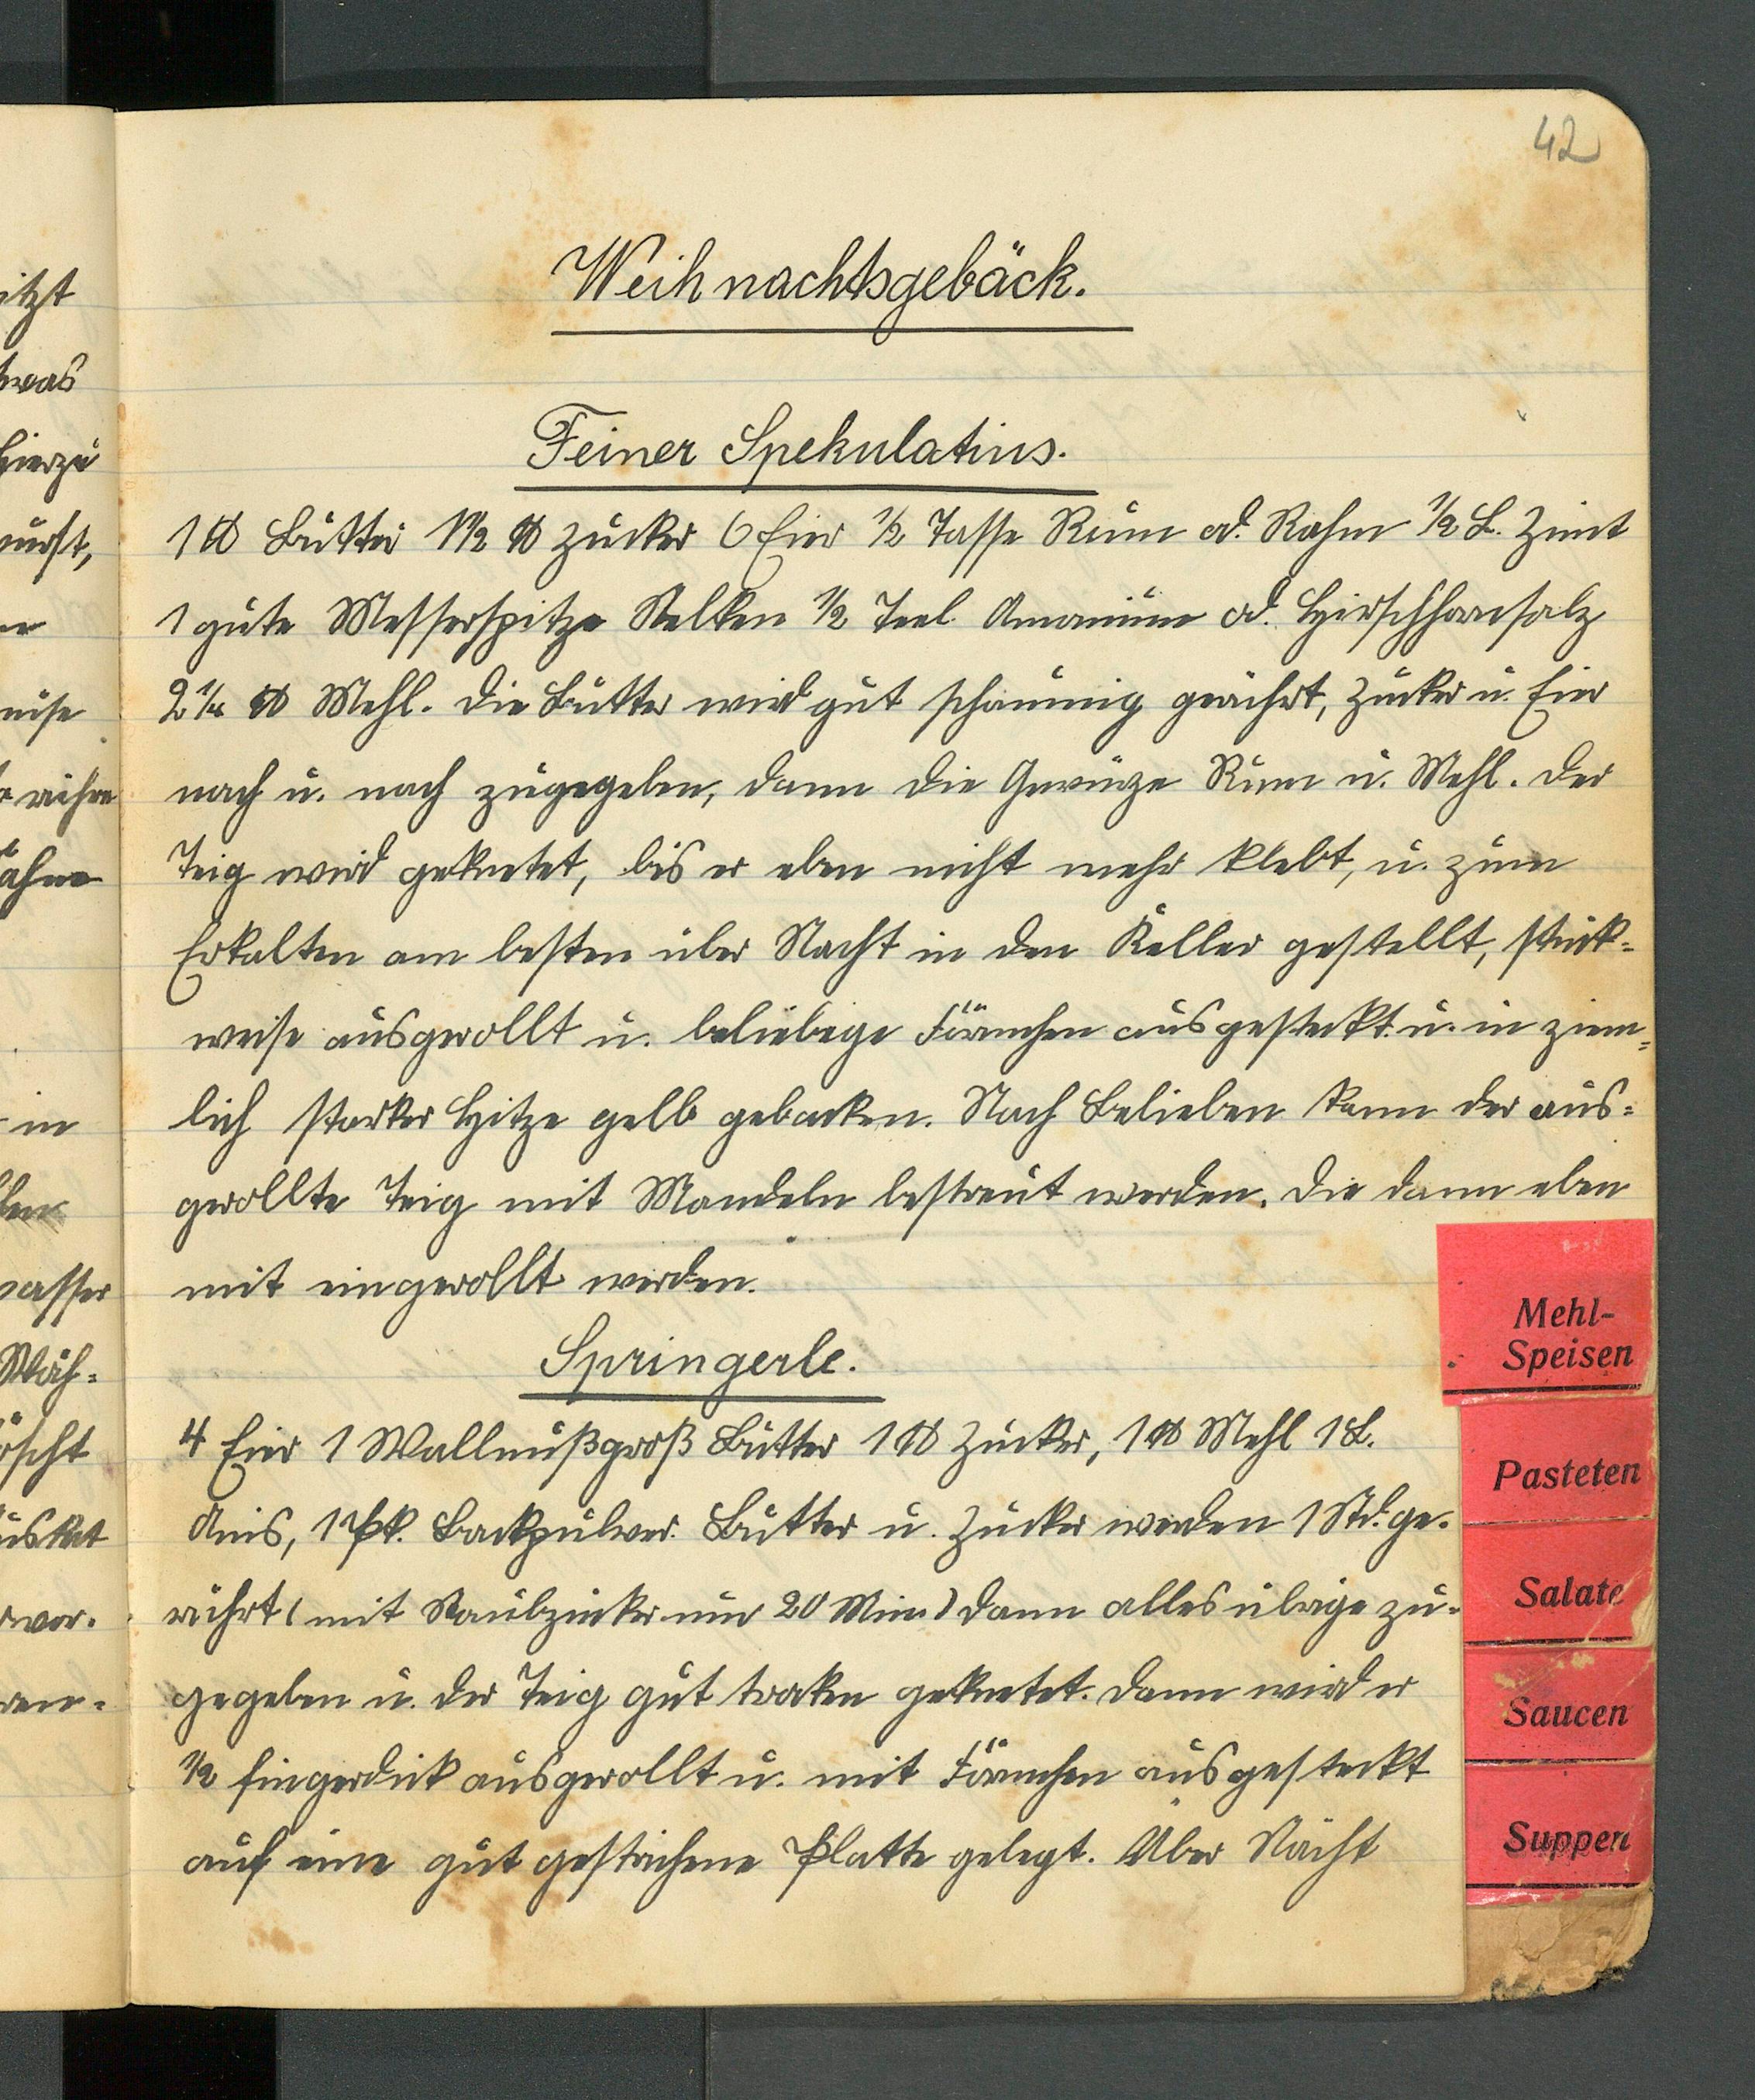 42
Weihnachtsgebäck.
Feiner Spekulatius.
1 ℔ Butter 1½ ℔ Zucker 6 Eier ½ Tasse Rum od. Rahm ½ L. Zimt
1 gute Messerspitze Nelken ½ Teel. Amonium od. Hirschhornsalz
2¼ ℔ Mehl. Die Butter wird gut schaumig gerührt, Zucker u. Eier
nach u. nach zugegeben, dann die Gewürze Rum u. Mehl. Der
Teig wird geknetet, bis er eben nicht mehr klebt, u. zum
Erkalten am besten über Nacht in den Keller gestellt, stück=
weise ausgerollt u. beliebige Förmchen ausgesteckt u. in ziem=
lich starker Hitze gelb gebacken. Nach Belieben kann der aus=
gerollte Teig mit Mandeln bestreut werden. Die dann eben
mit eingerollt werden.
Springerle.
4 Eier 1 Wallnußgroß Butter 1 ℔ Zucker, 1 ℔ Mehl 1 L.
Anis, 1 Pk. Backpulver. Butter u. Zucker werden 1 Std. ge-
rührt (mit Staubzucker nur 20 Min.) dann alles übrige zu-
gegeben u. der Teig gut trocken geknetet. Dann wird er
½ fingerdick ausgerollt u. mit Förmchen ausgesteckt
auf eine gut gestrichene Platte gelegt. Über Nacht
Mehl-
Speisen
Pasteten
Salate
Saucen
Suppen
itzt
twas
hierzu
in
wasser
öscht
uskat